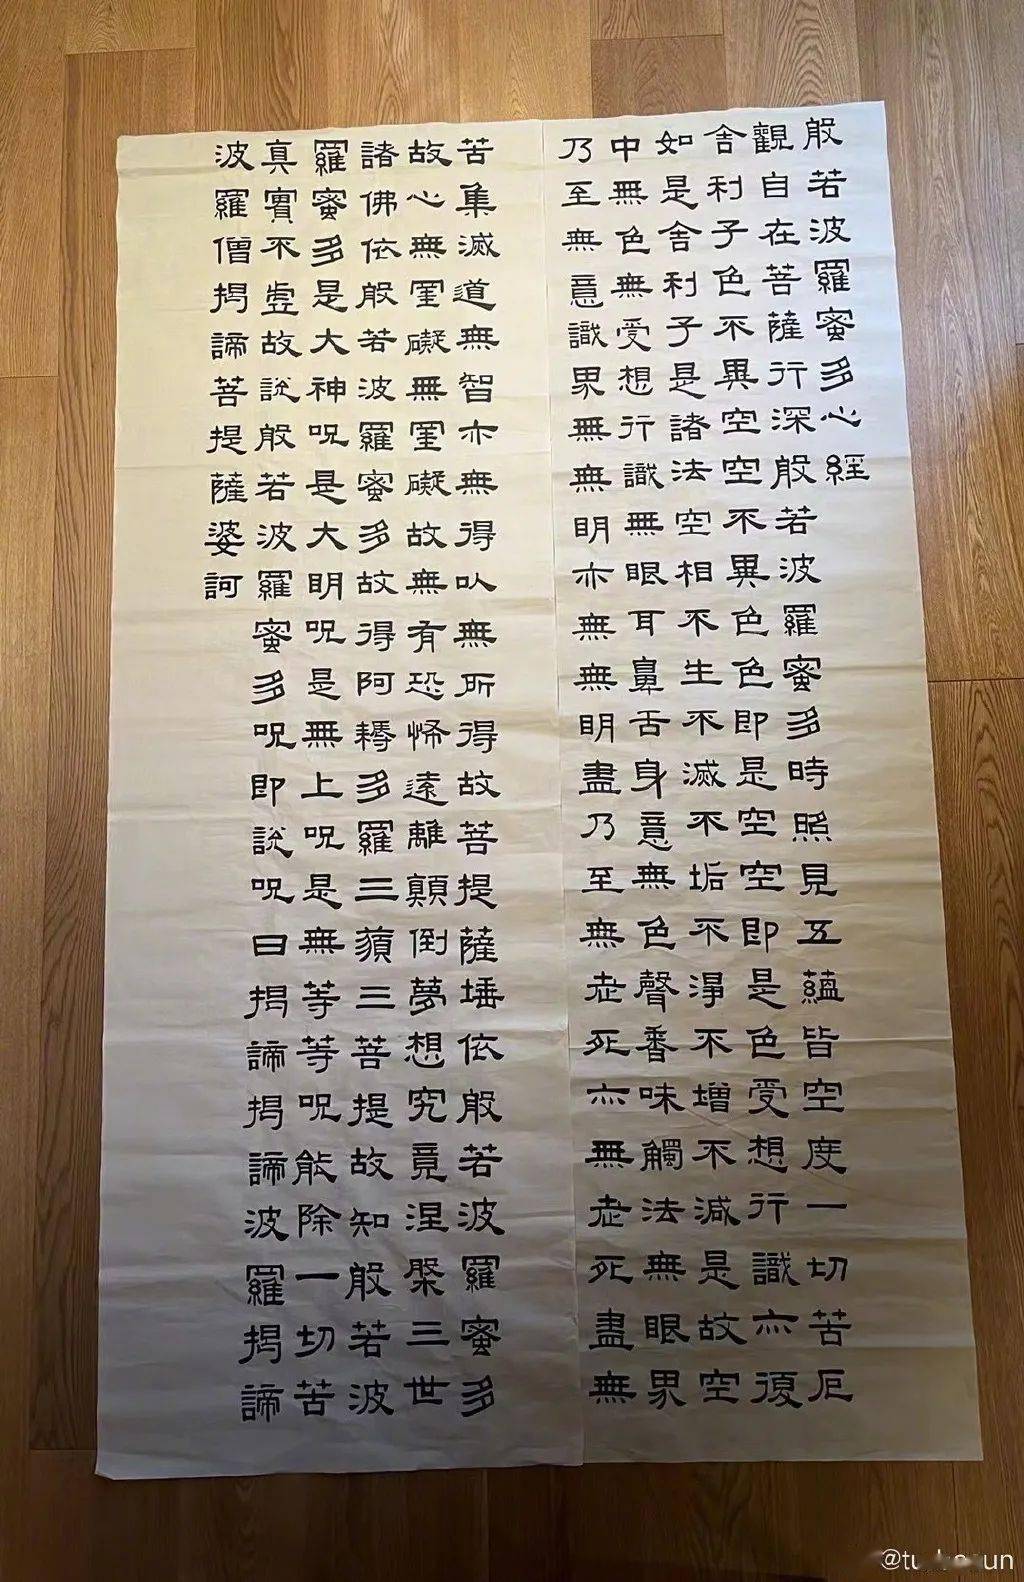 般若波羅蜜多心經
觀自在菩薩行深般若波羅蜜多時照見五蘊皆空度一切苦厄
舍利子色不異空空不異色色即是空空即是色受想行識亦復
如是舍利子是諸法空相不生不滅不垢不淨不增不減是故空
中無色無受想行識無眼耳鼻舌身意無色聲香味觸法無眼界
乃至無意識界無無明亦無無明盡乃至無老死亦無老死盡無
苦集滅道無智亦無得以無所得故菩提薩埵依般若波羅蜜多
故心無罣礙無罣礙故無有恐怖遠離顛倒夢想究竟涅槃三世
諸佛依般若波羅蜜多故得阿耨多羅三藐三菩提故知般若波
羅蜜多是大神呪是大明呪是無上呪是無等等呪能除一切苦
真實不虛故說般若波羅蜜多呪即說呪曰揭諦揭諦波羅揭諦
波羅僧揭諦菩提薩婆訶